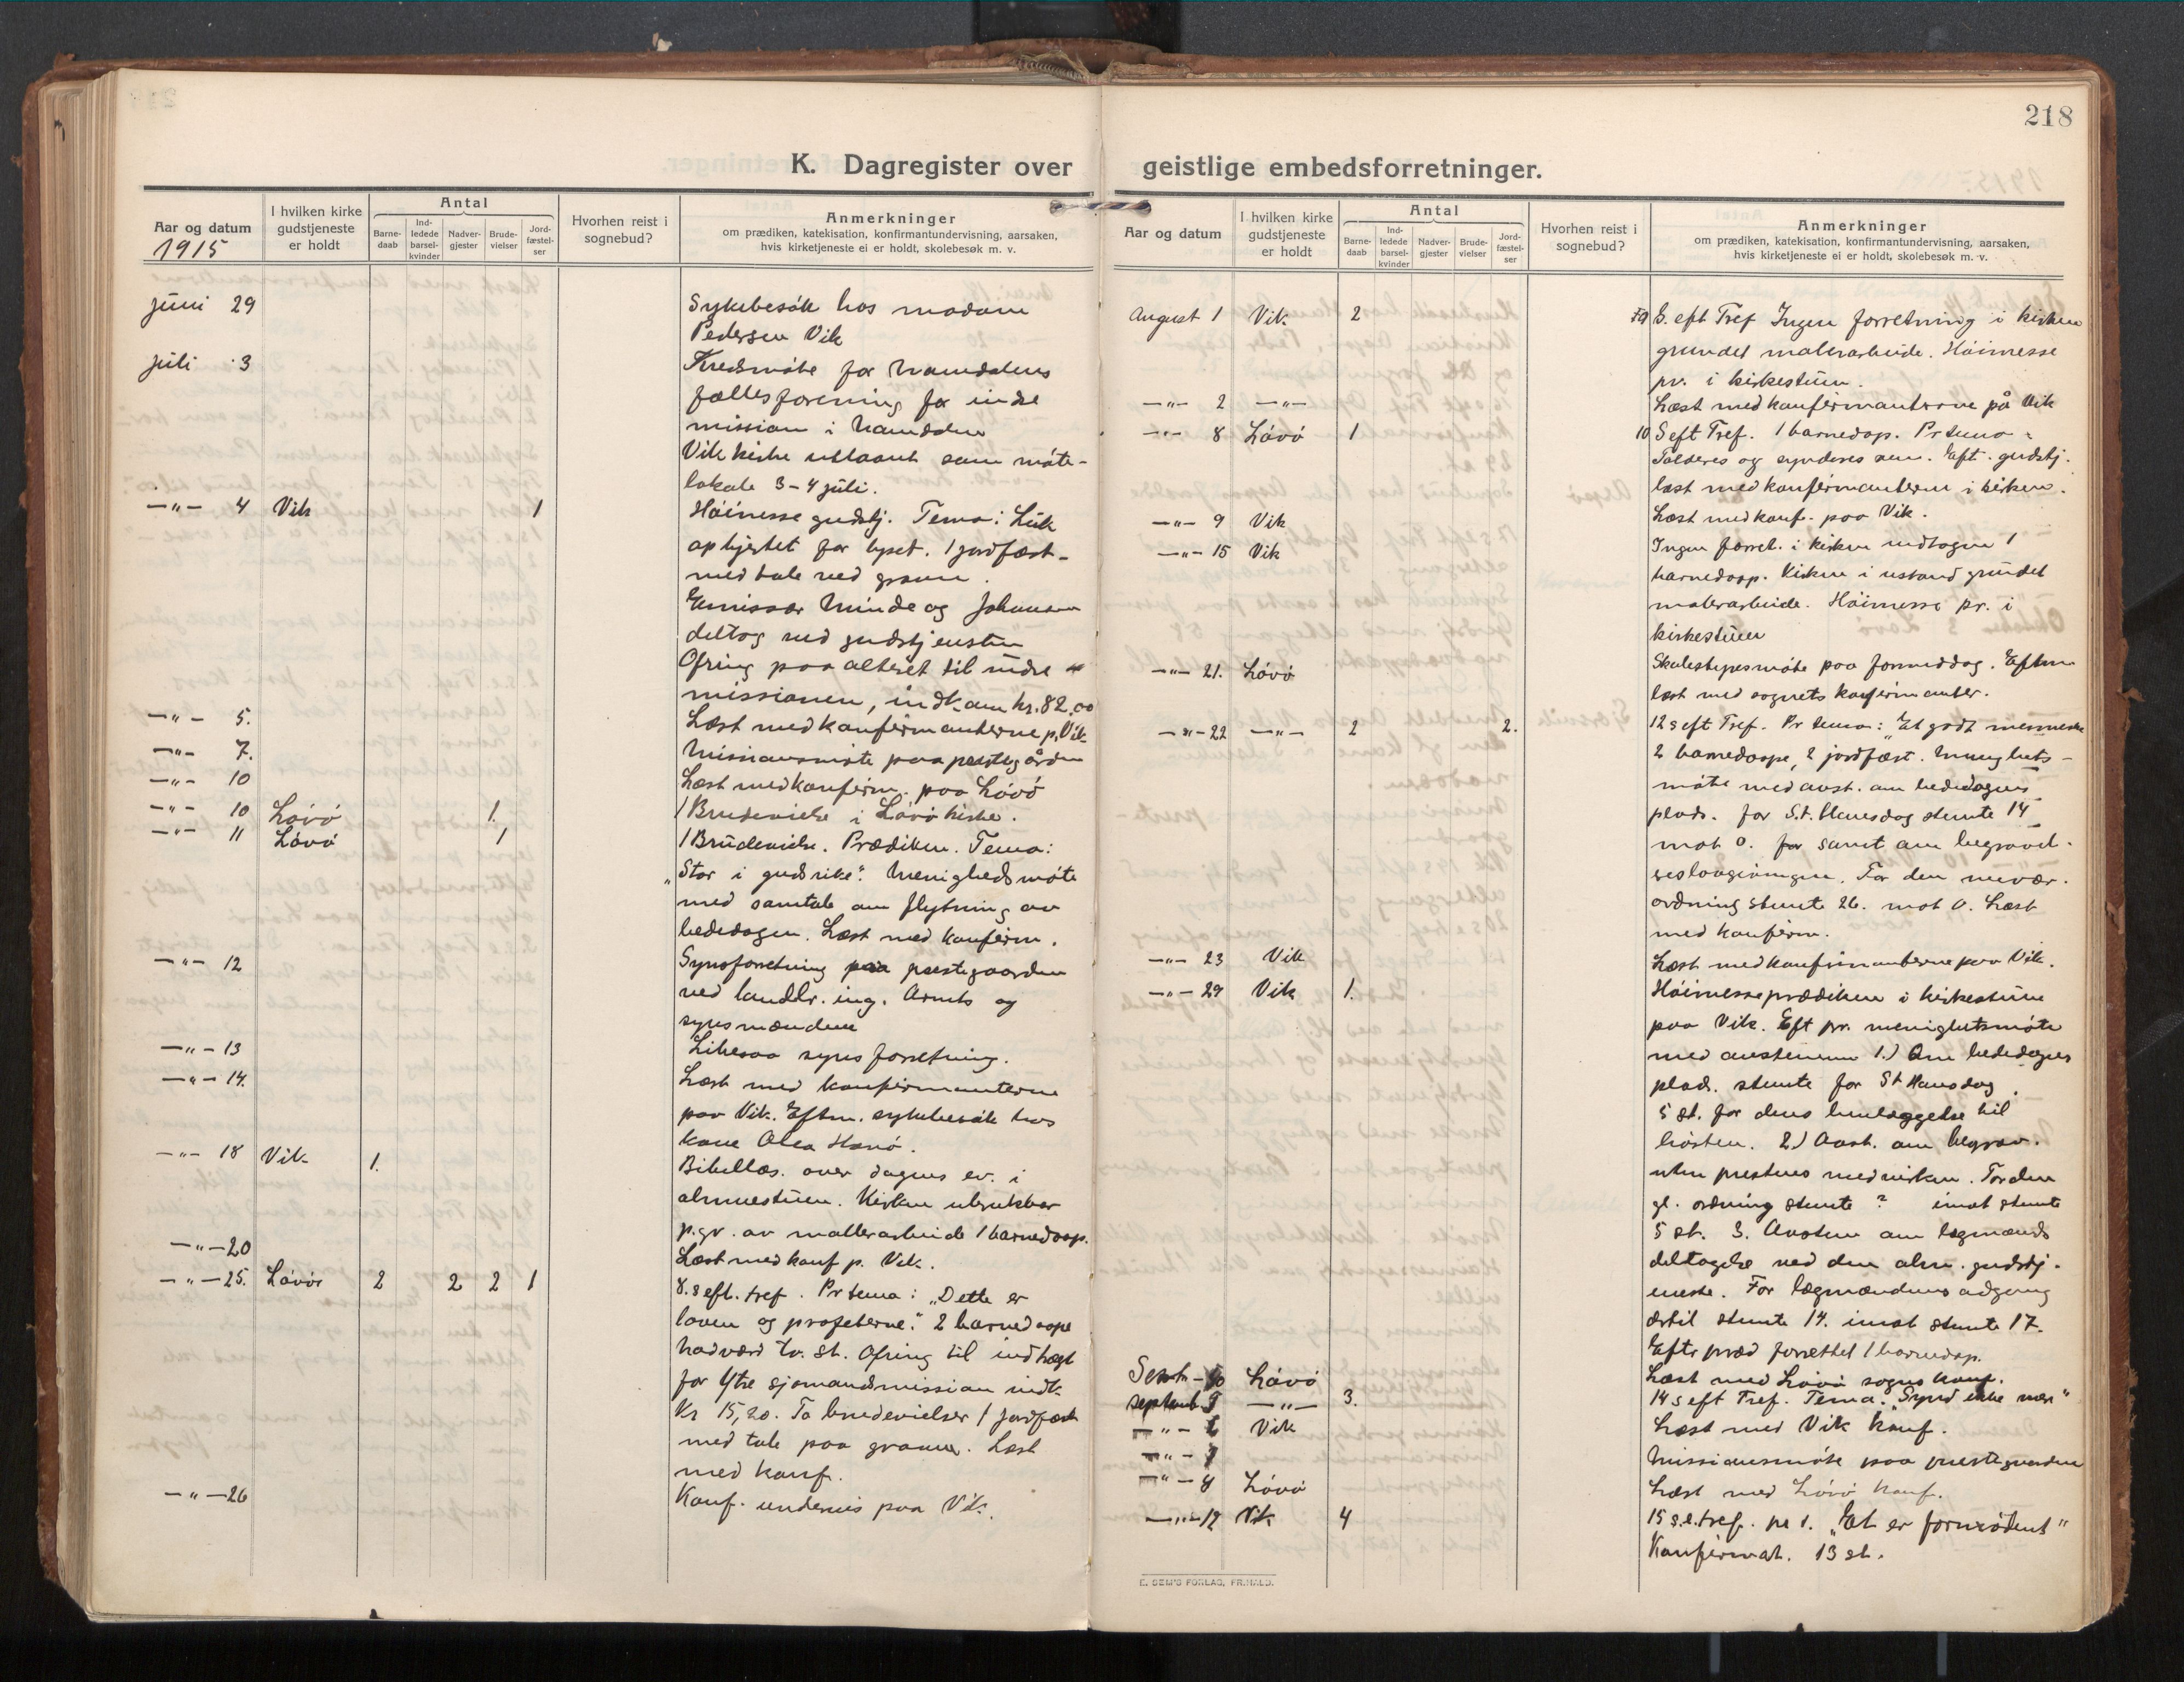 218
K. Dagregister over geistlige embedsforretninger.
Aar og datum
1915
I hvilken kirke gudstjeneste er holdt
Antal
Barne-daab
Ind-ledede barsel-kvinder
Nadver-gjester
Brude-vielser
Jord-fæstel-ser
Hvorhen reist i sognebud?
Anmerkninger
om prædiken, katekisation, konfirmantundervisning, aarsaken,
hvis kirketjeneste ei er holdt, skolebesøk m. v.
juni 29 Sykebesøk hos madam
Pedersen Vik
juli 3 Kredsmøte for Namdalens
fællesforening for indre
mission i Namdalen
Vik kirke utlaant som møte-
lokale 3-4 juli.
—"— 4 Vik 1 Høimesse gudstj. Tema: Luk
op hjertet for lyset. 1 jordfæst-
med tale ved graven.
Emissær Minde og Johansen
deltog ved gudstjensten
Ofring paa alteret til indre
missionen, indk. am kr. 82,00
—"— 5. Læst med konfirmanterne p. Vik
—"— 7. Missionsmøte paa prestegården
—"— 10 Læst med konfirm. paa Løvø
—"— 10 Løvø 1. 1 Brudevielse i Løvø kirke.
—"— 11 Løvø 1 1 Brudevielse. Prædiken. Tema:
"Stor i guds rike". Menighedsmøte
med samtale om flytning av
bededagen. Læst med konfirm.
—"— 12 Synsforretning paa prestegaarden
ved landbr. ing. Arnts og
synsmændene
—"— 13 Likesaa synsforretning.
—"— 14. Læst med konfirmanterne
paa Vik. Eftm. sykebesøk hos
kone Olea Horsø.
—"— 18 Vik 1. Bibellæs. over dagens ev. i
almuestuen. Kirken ubrukbar
p. gr. av mallerarbeide 1 barnedaap.
—"— 20 Læst med konf p. Vik.
—"— 25. Løvø 2 2 2 1 8. s eft. tref. Pr tema: "Dette er
loven og profeterne." 2 barnedaape
Nadværd to. st. Ofring til indtægt
for Ytre sjømandsmission indk.
Kr 15,20. To brudevielser 1 jordfæst
med tale paa graven. Læst
med konf.
—"— 26 Konf. undervis paa Vik.
Aar og datum
I hvilken kirke gudstjeneste er holdt
Antal
Barne-daab
Ind-ledede barsel-kvinder
Nadver-gjester
Brude-vielser
Jord-fæstel-ser
Hvorhen reist i sognebud?
Anmerkninger
om prædiken, katekisation, konfirmantundervisning, aarsaken,
hvis kirketjeneste ei er holdt, skolebesøk m. v.
August 1 Vik 2 S. eft Tref Ingen forretning i kirken
grundet malerarbeide. Høimesse
pr. i kirkestuen.
—"— 2 —"— Læst med konfirmanterne på Vik
—"— 8 Løvø 1 10 S eft Tref. 1 barnedap. Pr tema:
Tolderes og synderes ven. Eft. gudstj.
læst med konfirmanterne i kirken.
—"— 9 Vik Læst med konf. paa Vik.
—"— 15 Vik Ingen forret. i kirken undtagen 1
barnedaap. Kirken i ustand grundet
malerarbeide. Høimesse pr. i
kirkestuen
—"— 21. Løvø Skolestyresmøte paa formiddag. Eftm
læst med sognets konfirmanter.
—"— 22 —"— 2 2. 12 s eft Tref. Pr tema: "Et godt menneske
2 barnedaape, 2 jordfæst. Menighets-
møte med avst. om bededagens
plads. for S.t. Hansdag stemte 14
mot 0. samt om begravel-
seslovgivningen. For den nuvær.
ordning stemte 26. mot 0. Læst
med konfirm.
—"— 23 Vik Læst med konfirmanterne paa Vik.
—"— 29 Vik 1. Høimesseprædiken i kirkestuen
paa Vik. Eft pr. menighetsmøte
med avstemn 1.) Om bededagens
plads. stemte for St Hansdag
5 st. for dens henlæggelse til
høsten. 2.) Avst. om begrav.
uten prestens medvirken. For den
gl. ordning stemte ? imot stemte
5 st. 3. Avstem om lægmænds
deltagelse ved den alm. gudstj-
eneste. For lægmændens adgang
dertil stemte 14. imot stemte 17.
Efter præd forrettet 1 barnedap.
Sept Løvø Læst med Løvø sogns konf.
septemb. 5 —"— 3. 14 s eft Tref. Tema: "Synd ikke mere"
—"— 6 Vik Læst med Vik konf.
—"— 7 Missionsmøte paa prestegaarden
—"— 8 Løvø Læst med Løvø konf.
—"— 12 Vik 4 15 s.e. tref. "Et er fornødent"
Konfirmat. 13 st.
E. SEM'S FORLAG, FR.HALD.